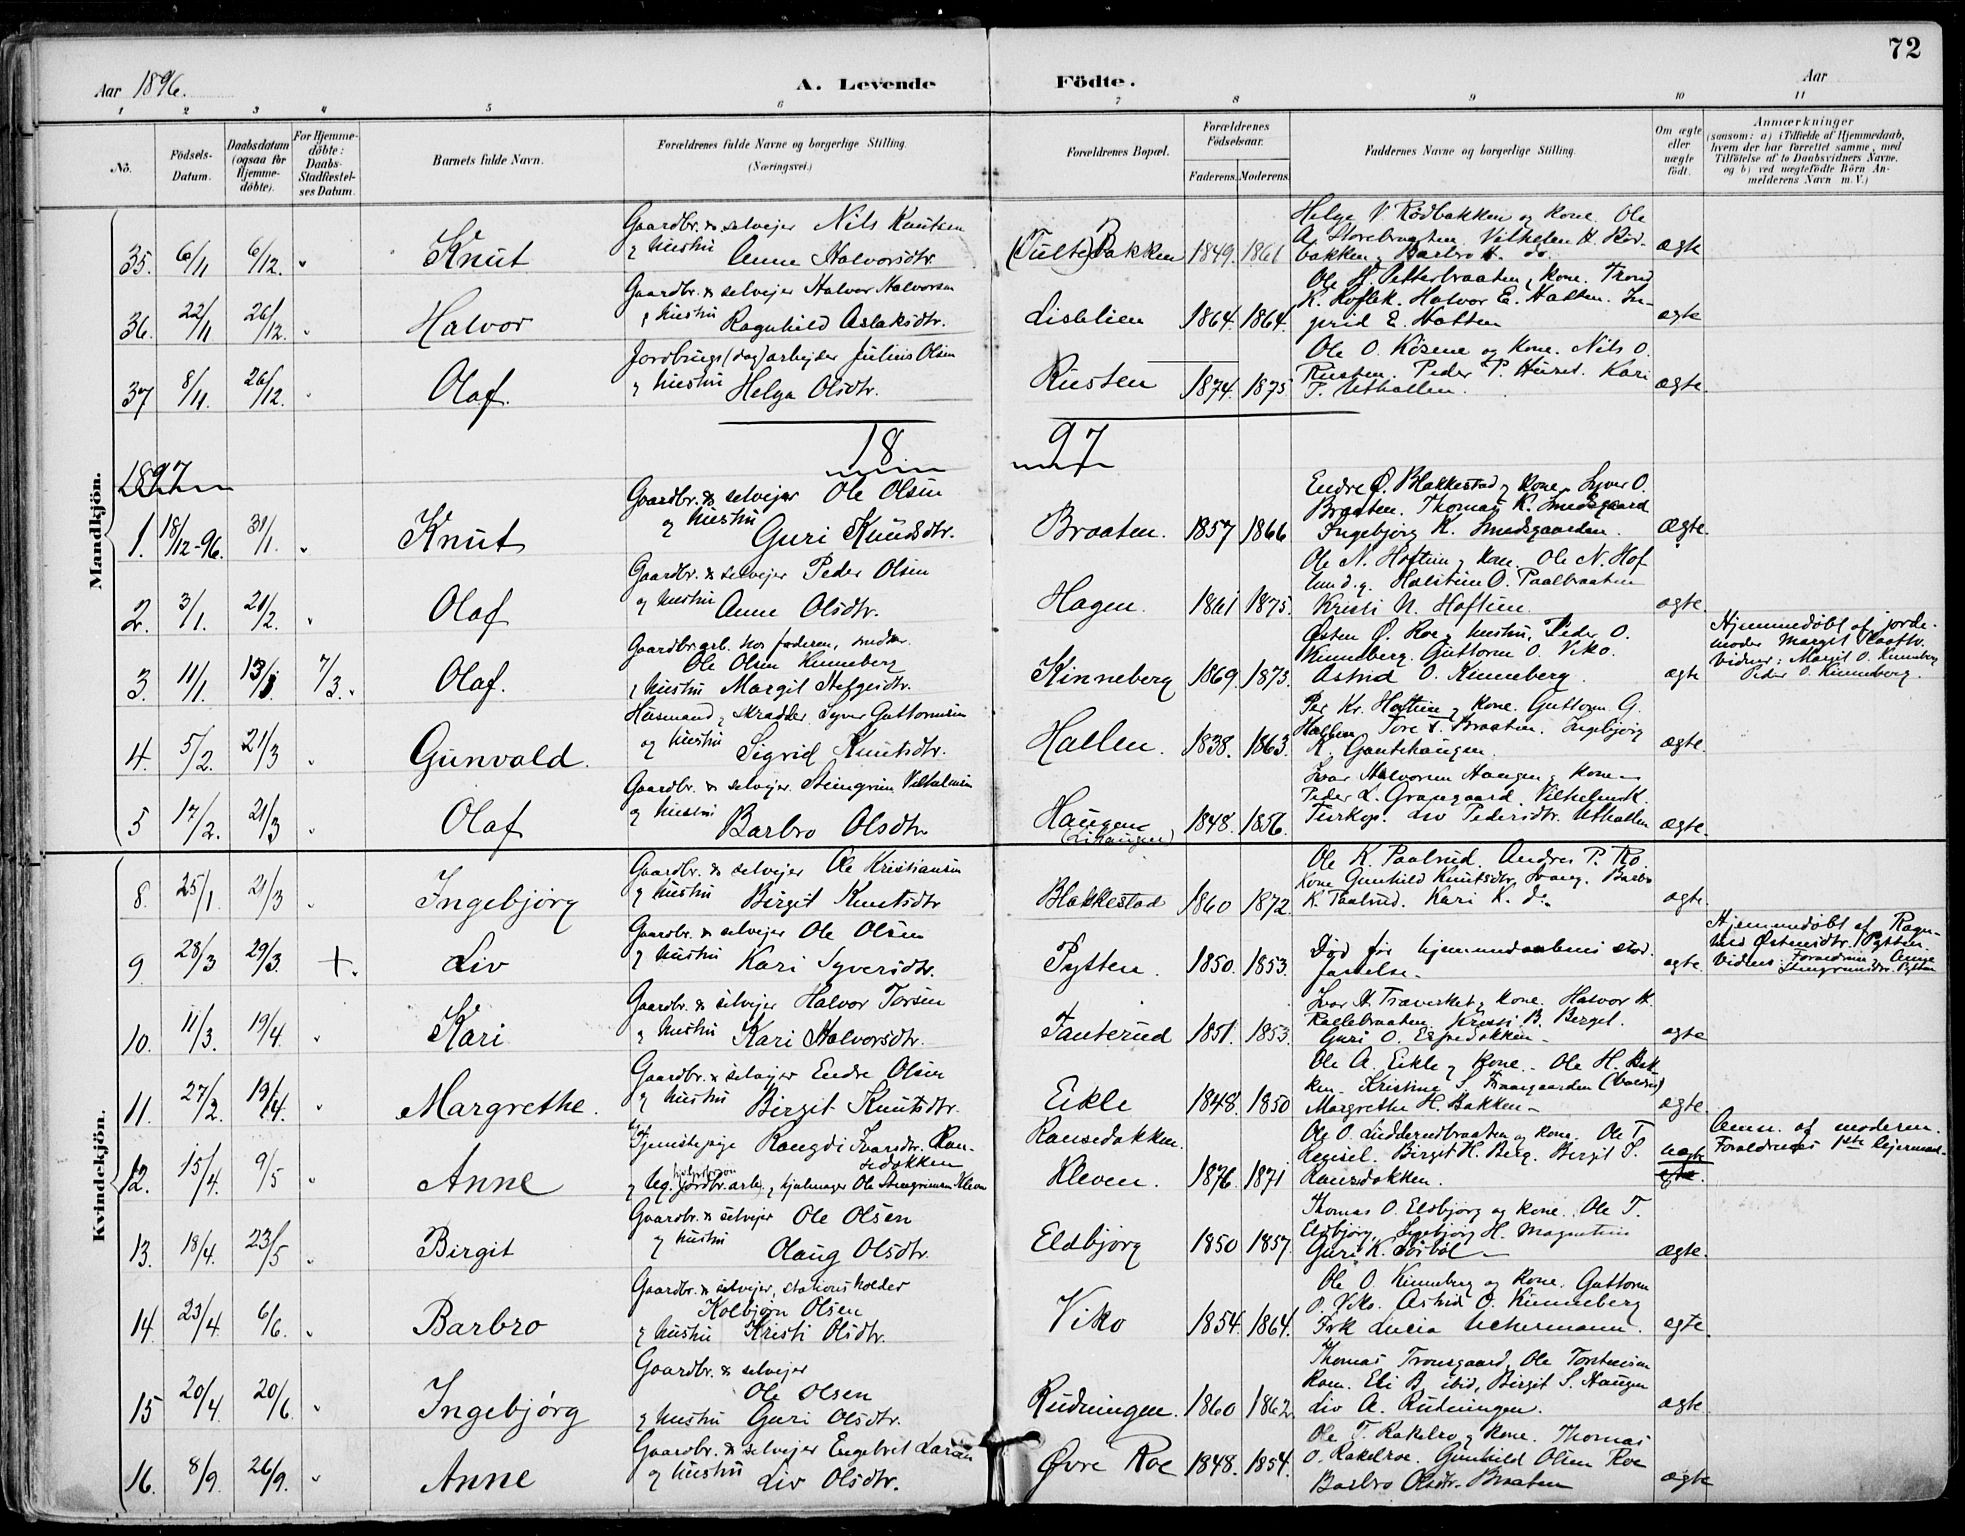 72
Aar 1896.
A. Levende Födte.
Aar
1 2 3 4 5 6 7 8 9 10 11
No.
Födsels-Datum.
Daabsdatum (ogsaa for Hjemme-döbte).
For Hjemme-döbte: Daabs-Stadfæstel-ses Datum.
Barnets fulde Navn.
Forældrenes fulde Navne og borgerlige Stilling. (Næringsvei.)
Forældrenes Bopæl.
Forældrenes Födselsaar.
Faderens. Moderens.
Faddernes Navne og borgerlige Stilling.
Om ægte eller uægte födt.
Anmærkninger
(saasom: a) i Tilfælde af Hjemmedaab, hvem der har forrettet samme, med Tilföielse af to Daabsvidners Navne, og b) ved uægtefödte Börn An-melderens Navn m. V.)
Mandkjön.
35. 6/11 6/12. " Knut
Gaardbr. & selvejer Nils Knutsen
og hustru Anne Halvorsdtr.
(Tufte)Bakken 1849. 1861
Helge V. Rødbakken og kone. Ole
A. Storebraaten. Vilhelm H. Rød-
bakken, Barbro H. do.
ægte
36. 22/11 26/12. " Halvor
Gaardbr. & selvejer Halvor Halvorsen
og hustru Ragnhild Aslaksdtr.
Lislelien 1864. 1864.
Ole H. Petterbraaten, kone. Trond
K. Hoflek. Halvor E. Hatten. In-
grid E. Hatten
ægte
37 8/11. 26/12. " Olaf.
Jordbrugs(dag)arbejder Julius Olsen
og hustru Helga Olsdtr.
Rusten 1874. 1875.
Ole O. Kösene og kone. Nils O.
Rusten. Peder P. Huset. Kari
T. Uthallen.
ægte.
18 97
1897
1. 18/12-96. 31/1. " Knut
Gaardbr. & selvejer Ole Olsen
og hustru Guri Knudsdtr.
Braaten. 1857 1866
Endre Ø. Blakkestad og kone. Syver O.
Braaten. Thomas K. Smedsgaard
Ingebjørg K. Smedsgaarden.
Ægte.
2. 3/1. 21/2. " Olaf
Gaardbr. & selvejer Peder Olsen
og hustru Anne Olsdtr.
Hagen. 1861 1875.
Ole N. Haftun og kone. Ole N. Hof
Holstein O. Paalbraaten
Kristi N. Haftun.
ægte.
3. 11/1. 13/1 7/3. Olaf.
Gaardbr.arb. hos faderen, smed
Ole Olsen Kinneberg
og hustru Margit
Kinneberg 1869. 1873.
Østen Ø. Roe og hustru. Peder O.
Kinneberg. Guttorm O. Viko.
Astrid O. Kinneberg.
ægte
Hjemmedøbt af jorde-
moder Margit
Vidner: Margit O. Kinneberg
Peder O. Kinneberg.
4. 5/2. 21/3 " Gunvald.
Husmand og skrædder Syver Guttormsen
og hustru Sigrid Knutsdtr.
Hallen. 1838. 1863.
Per Kr. Haftun og kone. Guttorm G.
Hallen. Tore T. Braaten. Ingebjørg
K. Gautehaugen.
ægte.
5 17/2. 21/3 " Olaf
Gaardbr. & selvejer Steingrim Vilhelmsen
og hustru Barbro Olsdtr
Haugen 1848. 1856.
Ivar Halvorsen Haugen og kone
Peder L. Grangaard. Vilhelm K.
Turkop. Liv Pedersdtr. Uthallen
ægte.
Kvindekjön.
8. 25/1. 21/3 " Ingebjørg
Gaardbr. & selvejer Ole Kristiansen
og hustru Birgit Knutsdtr
Blakkestad 1860 1872.
Ole K. Paalrud. Andres P. Ro
kone Gunhild Knutsdtr. Barbro
K. Paalrud. Kari K. do.
ægte.
9. 28/3 29/3. +. Liv
Gaardbr. & selvejer Ole Olsen
og hustru Kari Syversdtr.
Pytten. 1850. 1853.
Død før hjemmedaabens stad-
fæstelse.
ægte
Hjemmedøbt af Ragn-
hild Østensdtr. Pytten.
Vidner: Forældrene og Aunge
Steingrimsdtr. Pytten
10. 11/3. 19/4. " Kari
Gaardbr. & selvejer Halvor Torsen
og hustru Kari Halvorsdtr.
Tanterud 1851. 1853.
Ivar H. Traverket og kone. Halvor H.
Kristi B. Berget.
Guri O. Espedokken
ægte
11. 27/2. 19/4. " Margrethe.
Gaardbr. & selvejer Endre Olsen
og hustru Birgit Knutsdtr.
Eikle 1848. 1850
Ole A. Eikle og kone. Ole H. Bak
ken. Kristine S. Traangaarden (Valdres)
Margrethe H. Bakken
ægte.
12. 15/4. 9/5 " Anne
Tjenestepige Rangdi Ivarsdtr. Ran-
sedokken
og ug. jordbr.arb. & hjulmager Ole Steingrimsen Kleven
Ransedokken.
Kleven. 1876. 1871
Ole O. Ludderudbraaten og kone. Ole T.
Birgit H. Berg. Birgit S.
Ransedokken.
uægte
ægte
Anm. af moderen.
Forældrenes 1ste lejermaal.
13. 18/4. 23/5 " Birgit
Gaardbr. & selvejer Ole Olsen
og hustru Olaug Olsdtr.
Eldbjørg 1850 1857.
Thomas O. Eldbjørg og kone. Ole T.
Eldbjørg. Ingebjørg H.
Guri K. Sørbøl
Ægte.
14. 23/4. 6/6. " Barbro
Gaardbr. & selvejer, stationsholder
Kolbjørn Olsen
og hustru Kristi Olsdtr.
Viko 1854. 1864.
Ole O. Kinneberg og kone. Guttorm
O. Viko. Astrid O. Kinneberg
Frk Lucia Uchermann.
ægte.
15 20/4. 20/6. " Ingebjørg
Gaardbr. & selvejer
Ole Olsen
og hustru Guri Olsdtr.
Rudningen. 1860 1862
Thomas Tronsgaard, Ole Torstensen
Roen. Eli B. ibid, Birgit S. Haugen
Liv A. Rudningen.
ægte
16. 8/9. 26/9. " Anne
Gaardbr. & selvejer Engebret Larsen
og hustru Liv Olsdtr.
Øvre Roe 1848. 1854.
Ole T. Rakelro og kone. Thomas
O. Rakelroe. Gunhild Olsen Roe
Barbro Olsdtr. Braaten
ægte